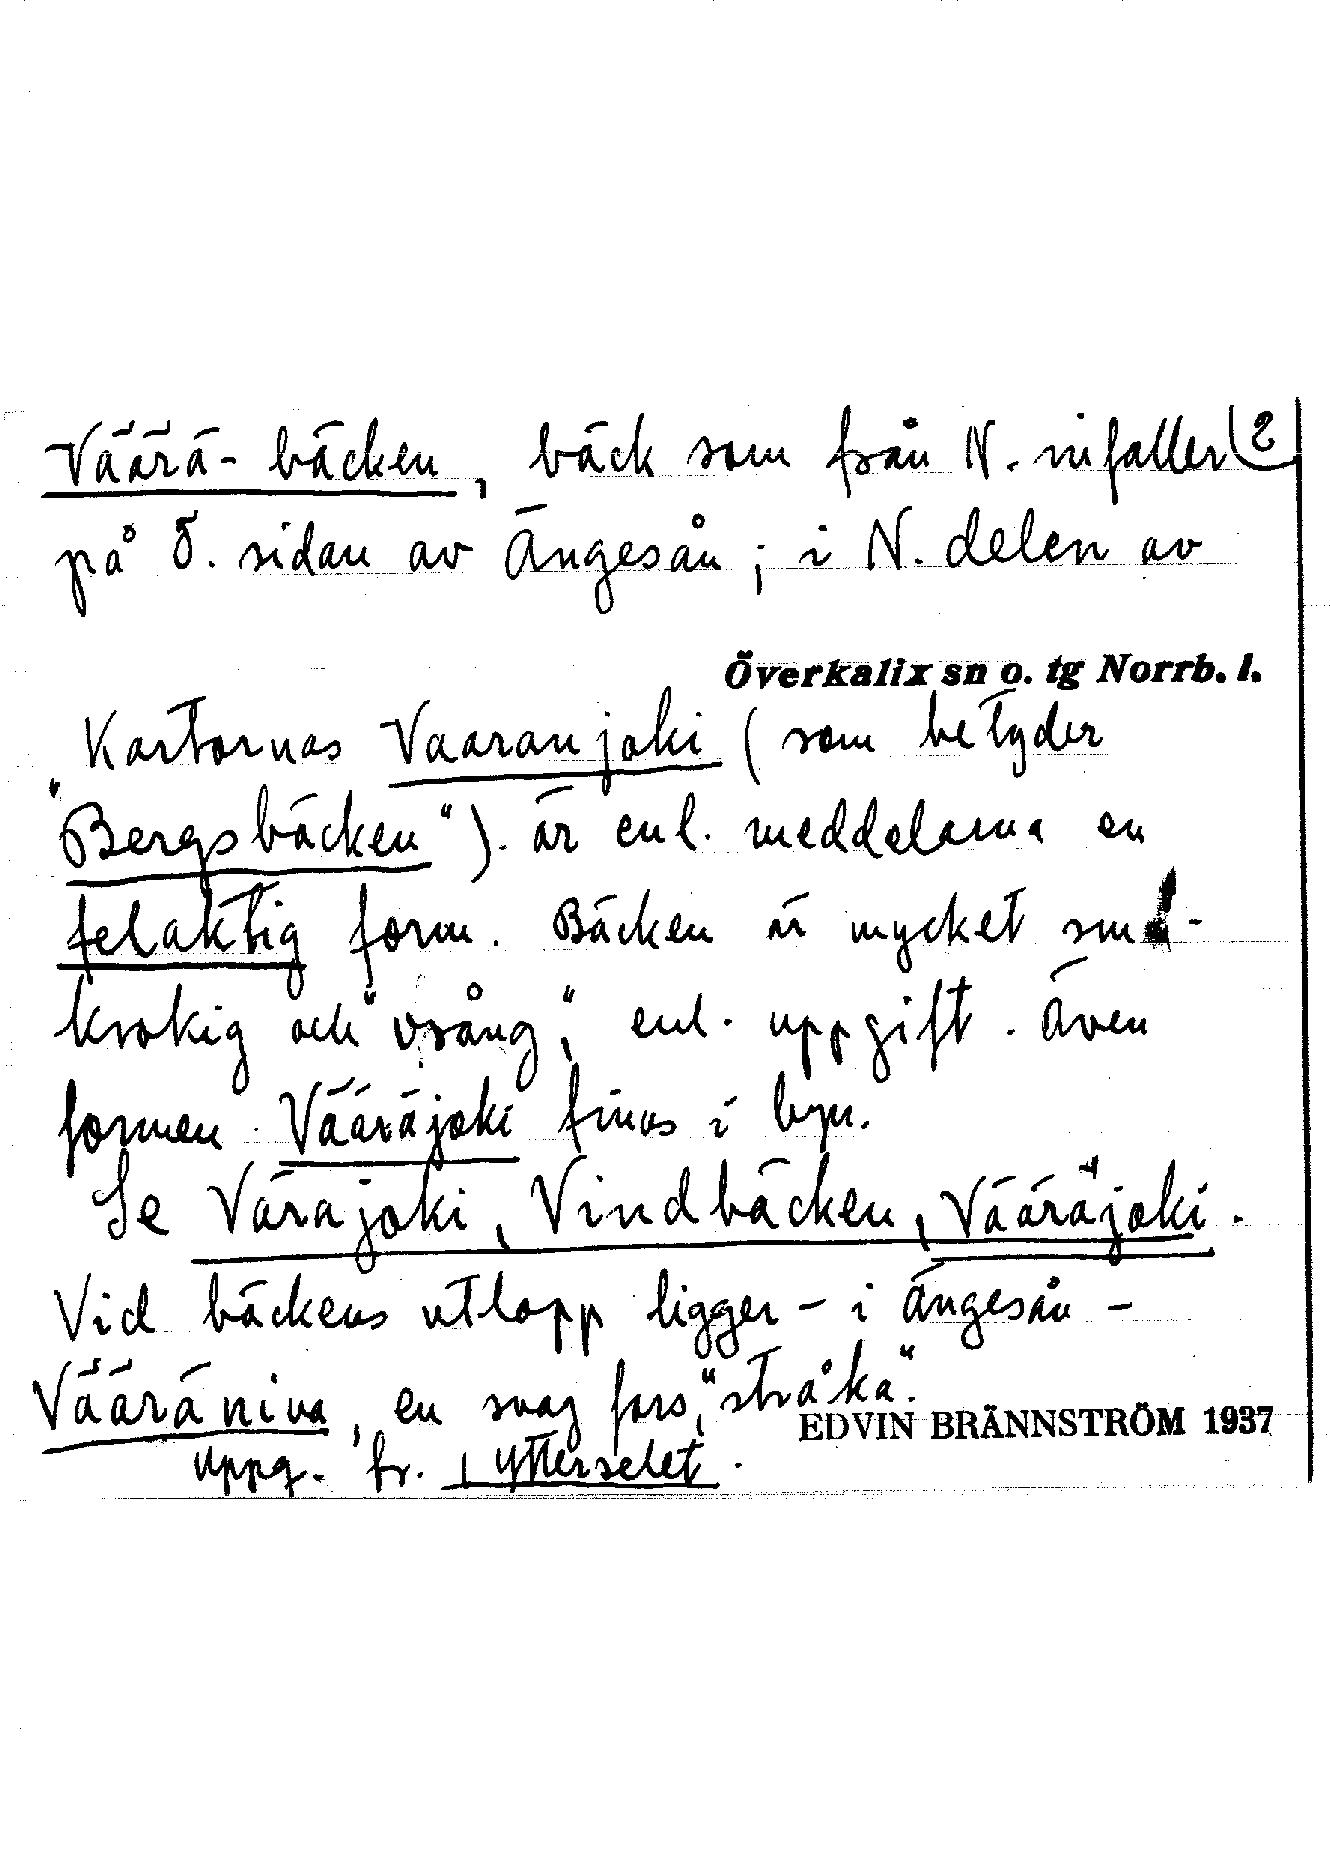 Väärä-bäcken, bäck som från N. infaller 2
på Ö. sidan av Ängesån; i N. delen av
Överkalix sn o. tg Norrb. l.
Kartornas Vaaranjoki (som betyder
"Bergsbäcken"). är enl. meddelarna en
felaktig form. Bäcken är mycket små-
krokig och "vrång", enl. uppgift. Även
formen Vääräjoki finns i byn.
Se Värajoki, Vindbäcken, Vääräjoki.
Vid bäckens utlopp ligger – i Ängesån –
Vääräniva, en svag fors, "stråka".
EDVIN BRÄNNSTRÖM 1937
uppg. fr. Ytterselet.